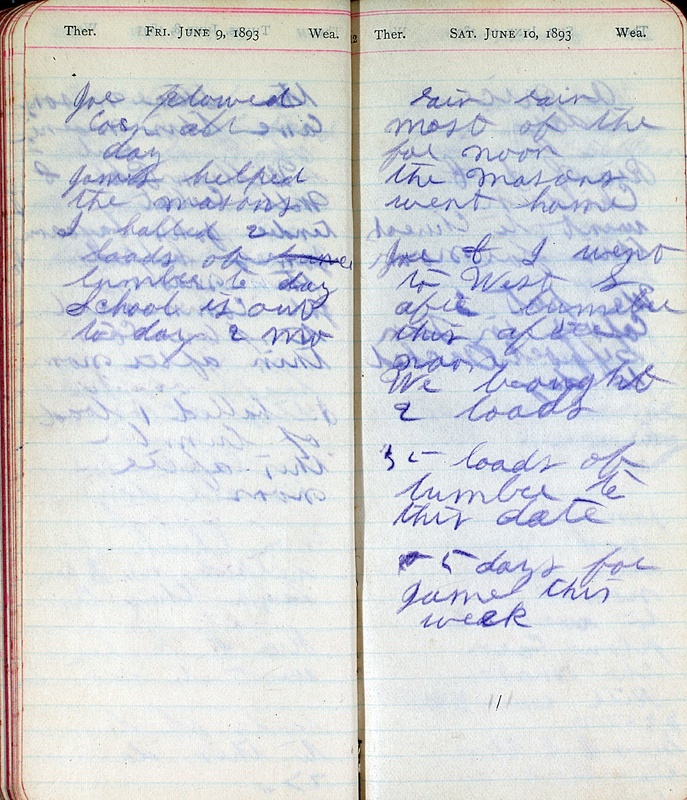 Ther. FRI. JUNE 9, 1893 Wea.
Joe plowed
Corn all
day
James helped
the masons
I halled 2
loads of
lumber to day
School is out
to day 2 mo
Ther. SAT. JUNE 10, 1893 Wea.
rain rain
most of the
foe noon
the masons
went home
Joe & I went
to West S
after lumber
this after
noon
We brought
2 loads
loads of
lumber to
this date
5 days for
James this
week